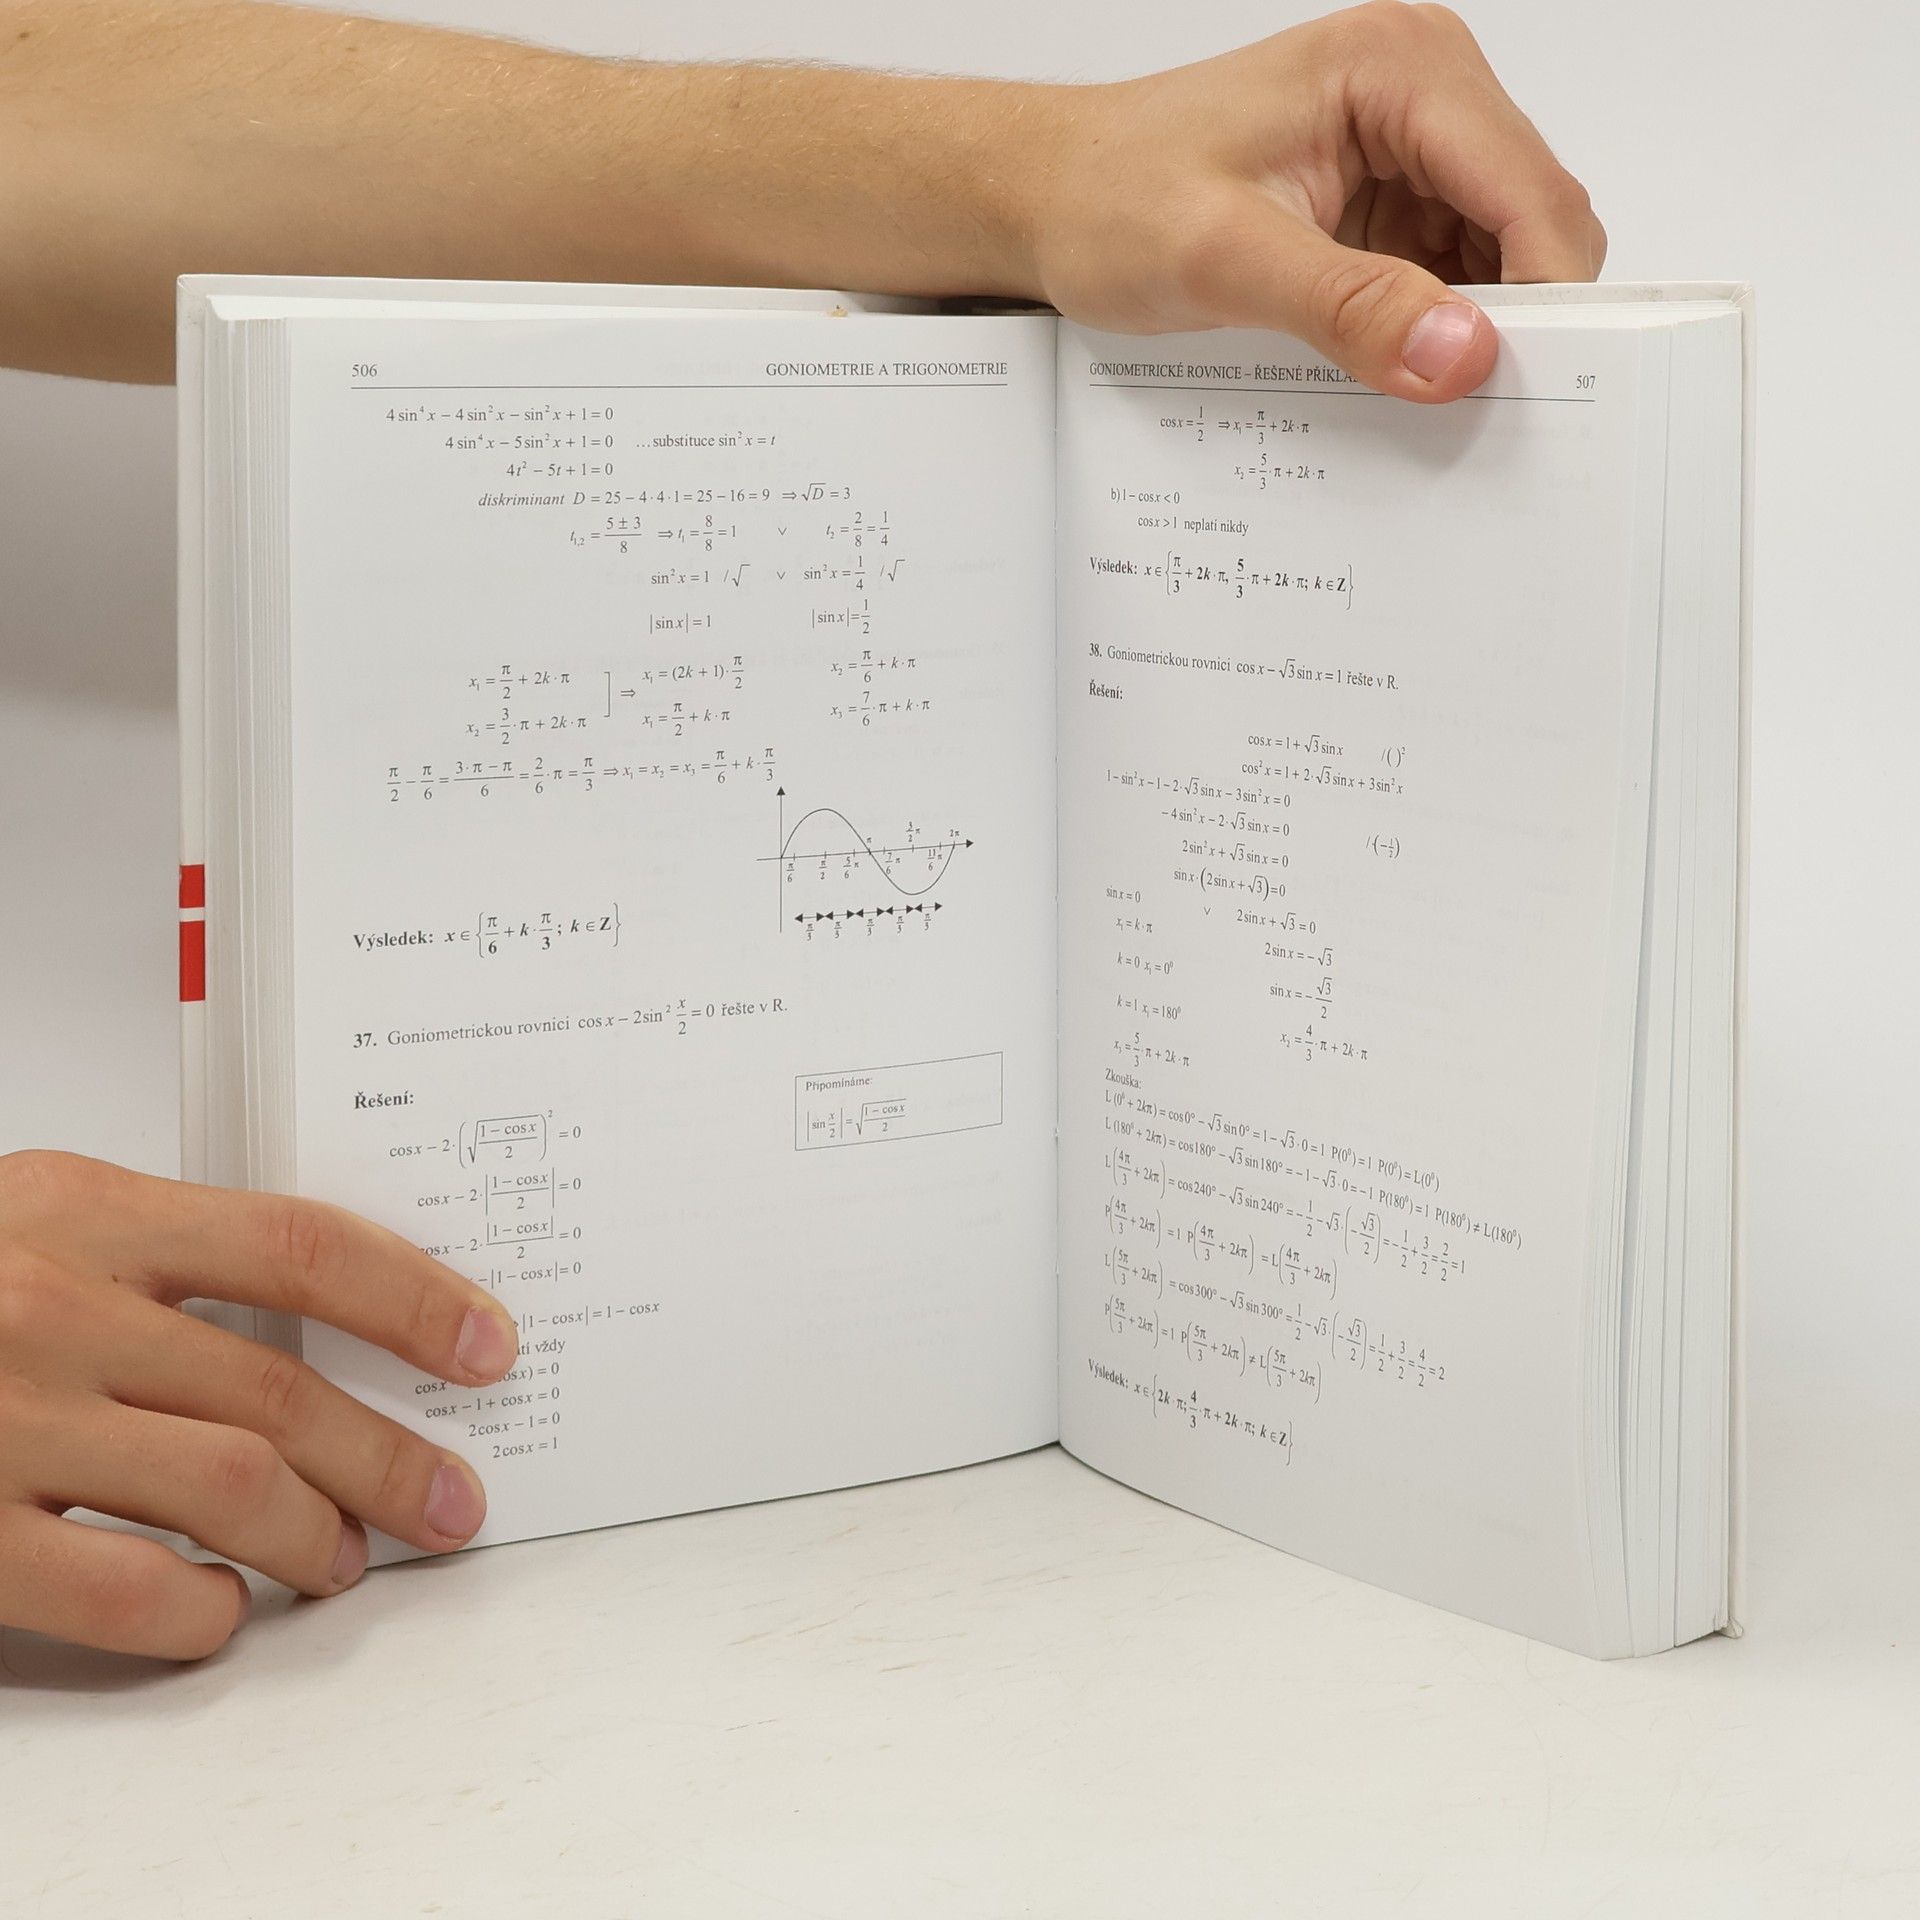 506 GONIOMETRIE A TRIGONOMETRIE
4 sin⁴ x − 4 sin² x − sin² x + 1 = 0
4 sin⁴ x − 5 sin² x + 1 = 0 …substituce sin² x = t
4t² − 5t + 1 = 0
diskriminant D = 25 − 4·4·1 = 25 − 16 = 9 ⇒ √D = 3
t₁,₂ = (5 ± 3)/8 ⇒ t₁ = 8/8 = 1 ∨ t₂ = 2/8 = 1/4
sin² x = 1 /√ ∨ sin² x = 1/4 /√
|sin x| = 1 |sin x| = 1/2
x₁ = π/2 + 2k·π ] ⇒ x₁ = (2k + 1)·π/2 x₂ = π/6 + k·π
x₂ = 3/2·π + 2k·π x₁ = π/2 + k·π x₃ = 7/6·π + k·π
π/2 − π/6 = (3·π − π)/6 = 2/6·π = π/3 ⇒ x₁ = x₂ = x₃ = π/6 + k·π/3
π/6 π/2 5/6 π π 7/6 π 3/2 π 11/6 π 2π
π/3 π/3 π/3 π/3 π/3
Výsledek: x ∈ {π/6 + k·π/3; k ∈ Z}
37. Goniometrickou rovnici cos x − 2sin² x/2 = 0 řešte v R.
Řešení:
Připomínáme:
|sin x/2| = √((1 − cos x)/2)
cos x − 2·(√((1 − cos x)/2))² = 0
cos x − 2·|(1 − cos x)/2| = 0
cos x − 2·|1 − cos x|/2 = 0
− |1 − cos x| = 0
|1 − cos x| = 1 − cos x
vždy
cos x = 0
cos x − 1 + cos x = 0
2 cos x − 1 = 0
2 cos x = 1
GONIOMETRICKÉ ROVNICE – ŘEŠENÉ 507
cos x = 1/2 ⇒ x₁ = π/3 + 2k·π
x₂ = 5/3·π + 2k·π
b) 1 − cos x < 0
cos x > 1 neplatí nikdy
Výsledek: x ∈ {π/3 + 2k·π, 5/3·π + 2k·π; k ∈ Z}
38. Goniometrickou rovnici cos x − √3 sin x = 1 řešte v R.
Řešení:
cos x = 1 + √3 sin x /( )²
cos² x = 1 + 2·√3 sin x + 3 sin² x
1 − sin² x − 1 − 2·√3 sin x − 3 sin² x = 0
− 4 sin² x − 2·√3 sin x = 0 /·(−1/2)
2 sin² x + √3 sin x = 0
sin x·(2 sin x + √3) = 0
sin x = 0 ∨ 2 sin x + √3 = 0
x₁ = k·π 2 sin x = − √3
k = 0 x₁ = 0⁰ sin x = − √3/2
k = 1 x₁ = 180⁰ x₂ = 4/3·π + 2k·π
x₃ = 5/3·π + 2k·π
Zkouška:
L(0⁰ + 2kπ) = cos 0° − √3 sin 0° = 1 − √3·0 = 1 P(0⁰) = 1 P(0⁰) = L(0⁰)
L(180⁰ + 2kπ) = cos 180° − √3 sin 180° = −1 − √3·0 = −1 P(180⁰) = 1 P(180⁰) ≠ L(180⁰)
L(4π/3 + 2kπ) = cos 240° − √3 sin 240° = −1/2 − √3·(−√3/2) = −1/2 + 3/2 = 2/2 = 1
P(4π/3 + 2kπ) = 1 P(4π/3 + 2kπ) = L(4π/3 + 2kπ)
L(5π/3 + 2kπ) = cos 300° − √3 sin 300° = 1/2 − √3·(−√3/2) = 1/2 + 3/2 = 4/2 = 2
P(5π/3 + 2kπ) = 1 P(5π/3 + 2kπ) ≠ L(5π/3 + 2kπ)
Výsledek: x ∈ {2k·π; 4/3·π + 2k·π; k ∈ Z}